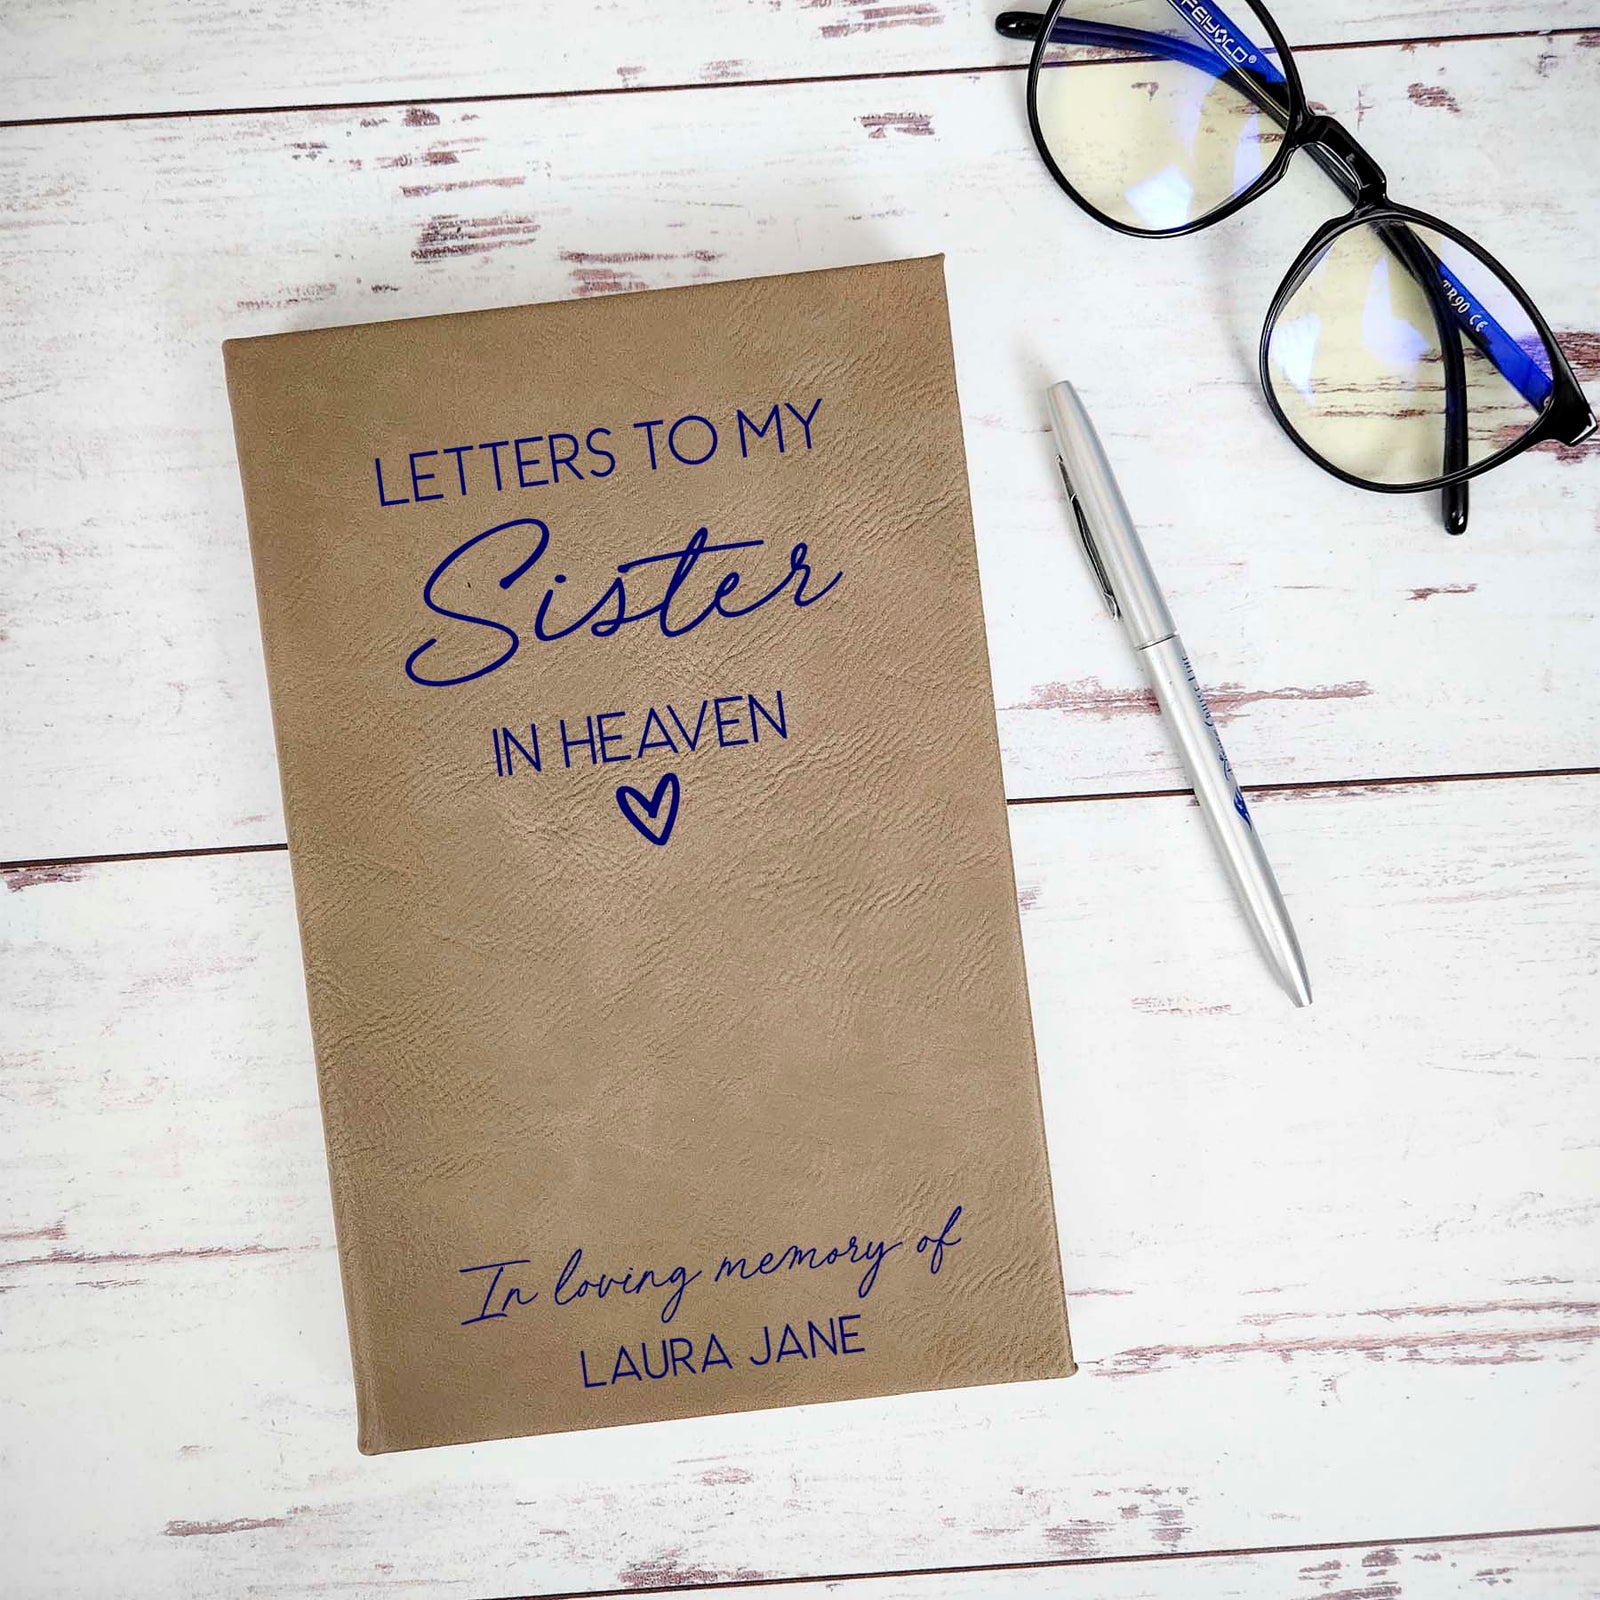 FEIYOLD®
TR90 CE
LETTERS TO MY
Sister
IN HEAVEN
In loving memory of
LAURA JANE